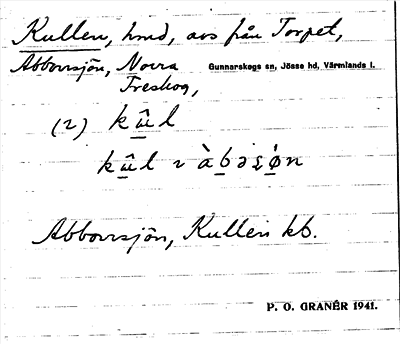 Kullen, hmd, avs från Torpet,
Abborrsjön, Norra Gunnarskogs sn, Jösse hd, Värmlands l.
Treskog,
(2) kûl
kûl ı àbəʂǿn
Abborrsjön, Kullen kb.
P. O. GRANÉR 1941.